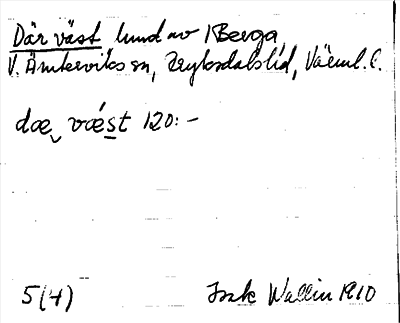 Där väst hund av KBerga
V. Ämterviks sn, Fryksdals hd, Värml. l.
dæ væst 120:-
5(4) Isak Wallin 1910